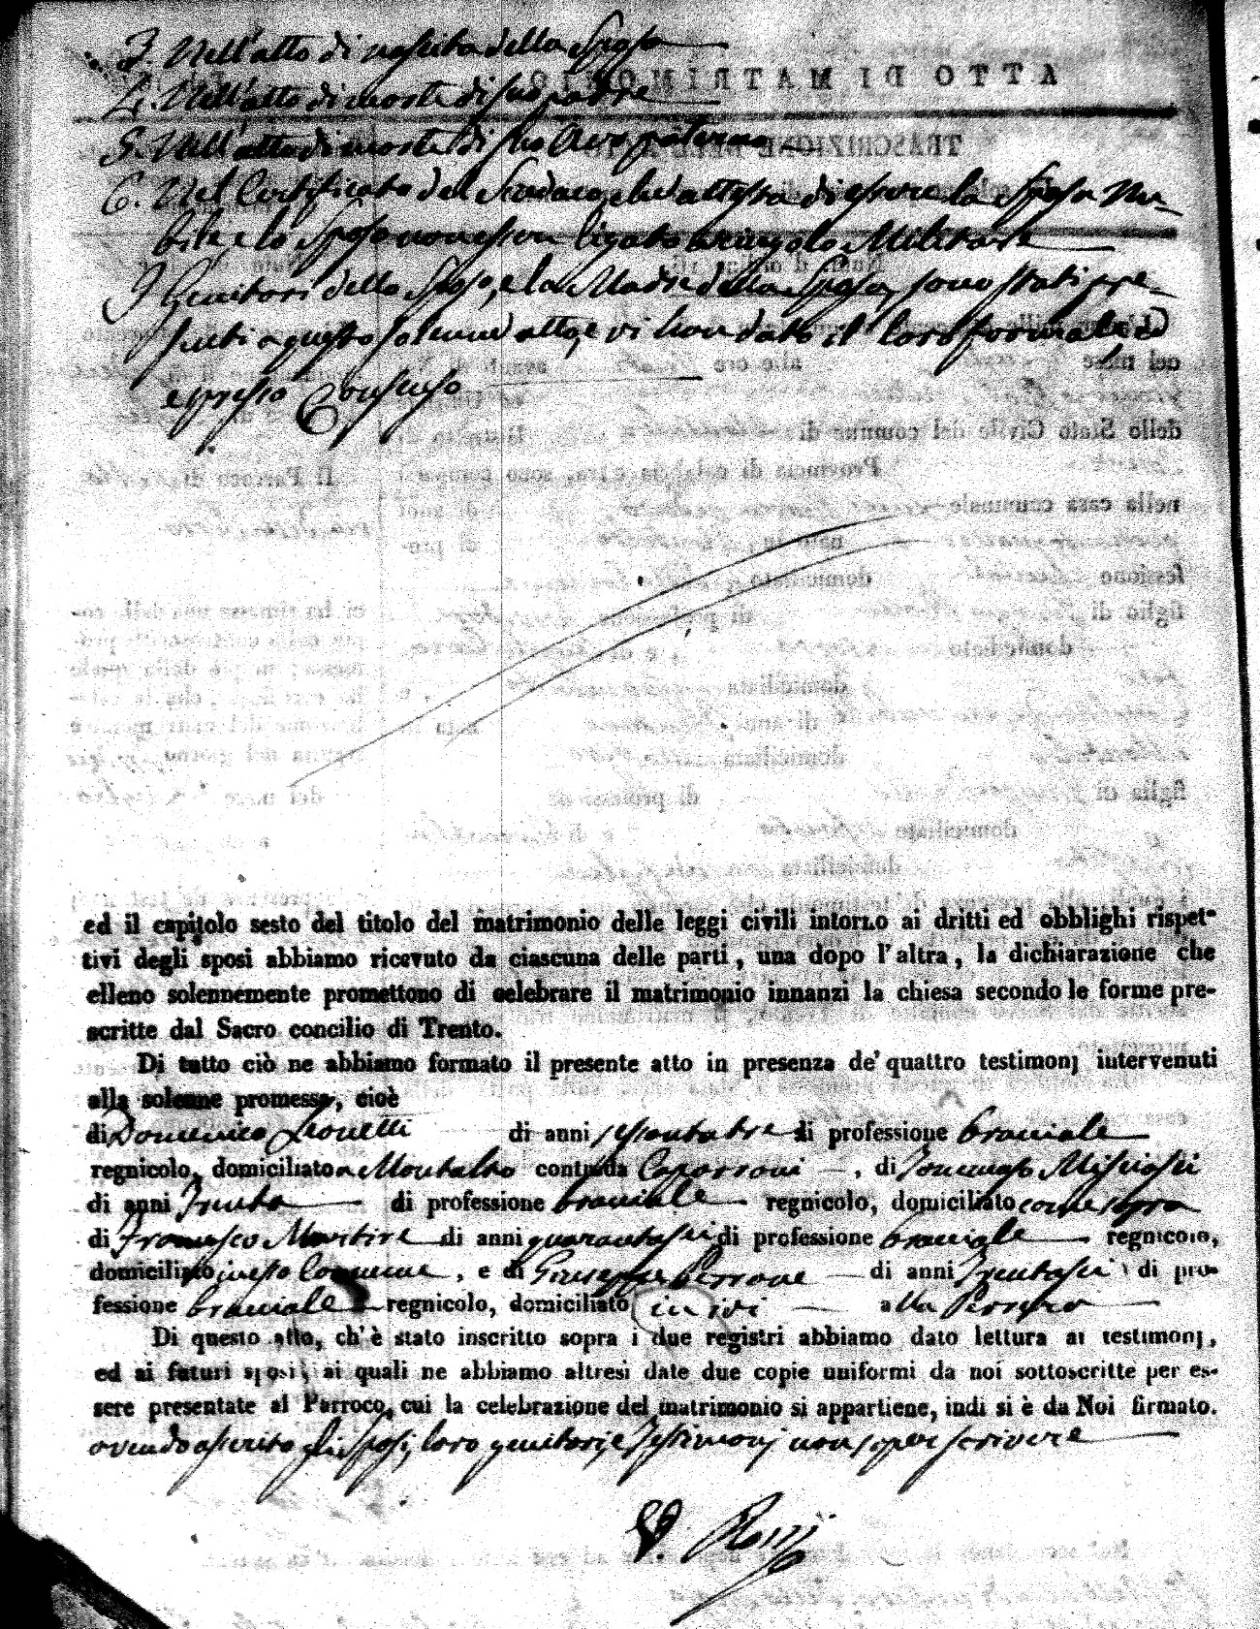 3. Nell'atto di nascita della Sposa
4. Nell'atto di morte di suo padre
5. Nell'atto di morte di suo Avo paterno
6. Nel Certificato del Sindaco, che attesta di essere la Sposa Nu-
bile, e lo Sposo non esser ligato a vincolo Militare
I Genitori dello Sposo, e la Madre della Sposa, sono stati pre-
senti a questo solenne atto, e vi han dato il loro formale ed
espresso Consenso
ed il capitolo sesto del titolo del matrimonio delle leggi civili intorno ai dritti ed obblighi rispet-
tivi degli sposi abbiamo ricevuto da ciascuna delle parti, una dopo l'altra, la dichiarazione che
elleno solennemente promettono di celebrare il matrimonio innanzi la chiesa secondo le forme pre-
scritte dal Sacro concilio di Trento.
Di tutto ciò ne abbiamo formato il presente atto in presenza de' quattro testimonj intervenuti
alla solenne promessa, cioè
di Domenico Leonetti di anni sessantatre di professione bracciale
regnicolo, domiciliato a Montalto contrada Caporroni, di Tommaso
di anni Trenta di professione bracciale regnicolo, domiciliato come sopra
di Francesco Martire di anni quarantasei di professione bracciale regnicolo,
domiciliato in esso Comune, e di Giuseppe Perrone di anni Trentasei di pro-
fessione bracciale regnicolo, domiciliato in ivi alla
Di questo atto, ch'è stato inscritto sopra i due registri abbiamo dato lettura ai testimonj,
ed ai futuri sposi, ai quali ne abbiamo altresi date due copie uniformi da noi sottoscritte per es-
sere presentate al Parroco, cui la celebrazione del matrimonio si appartiene, indi si è da Noi firmato.
avendo asserito gli Sposi, loro genitori, e Testimonj non saper scrivere
Rossi